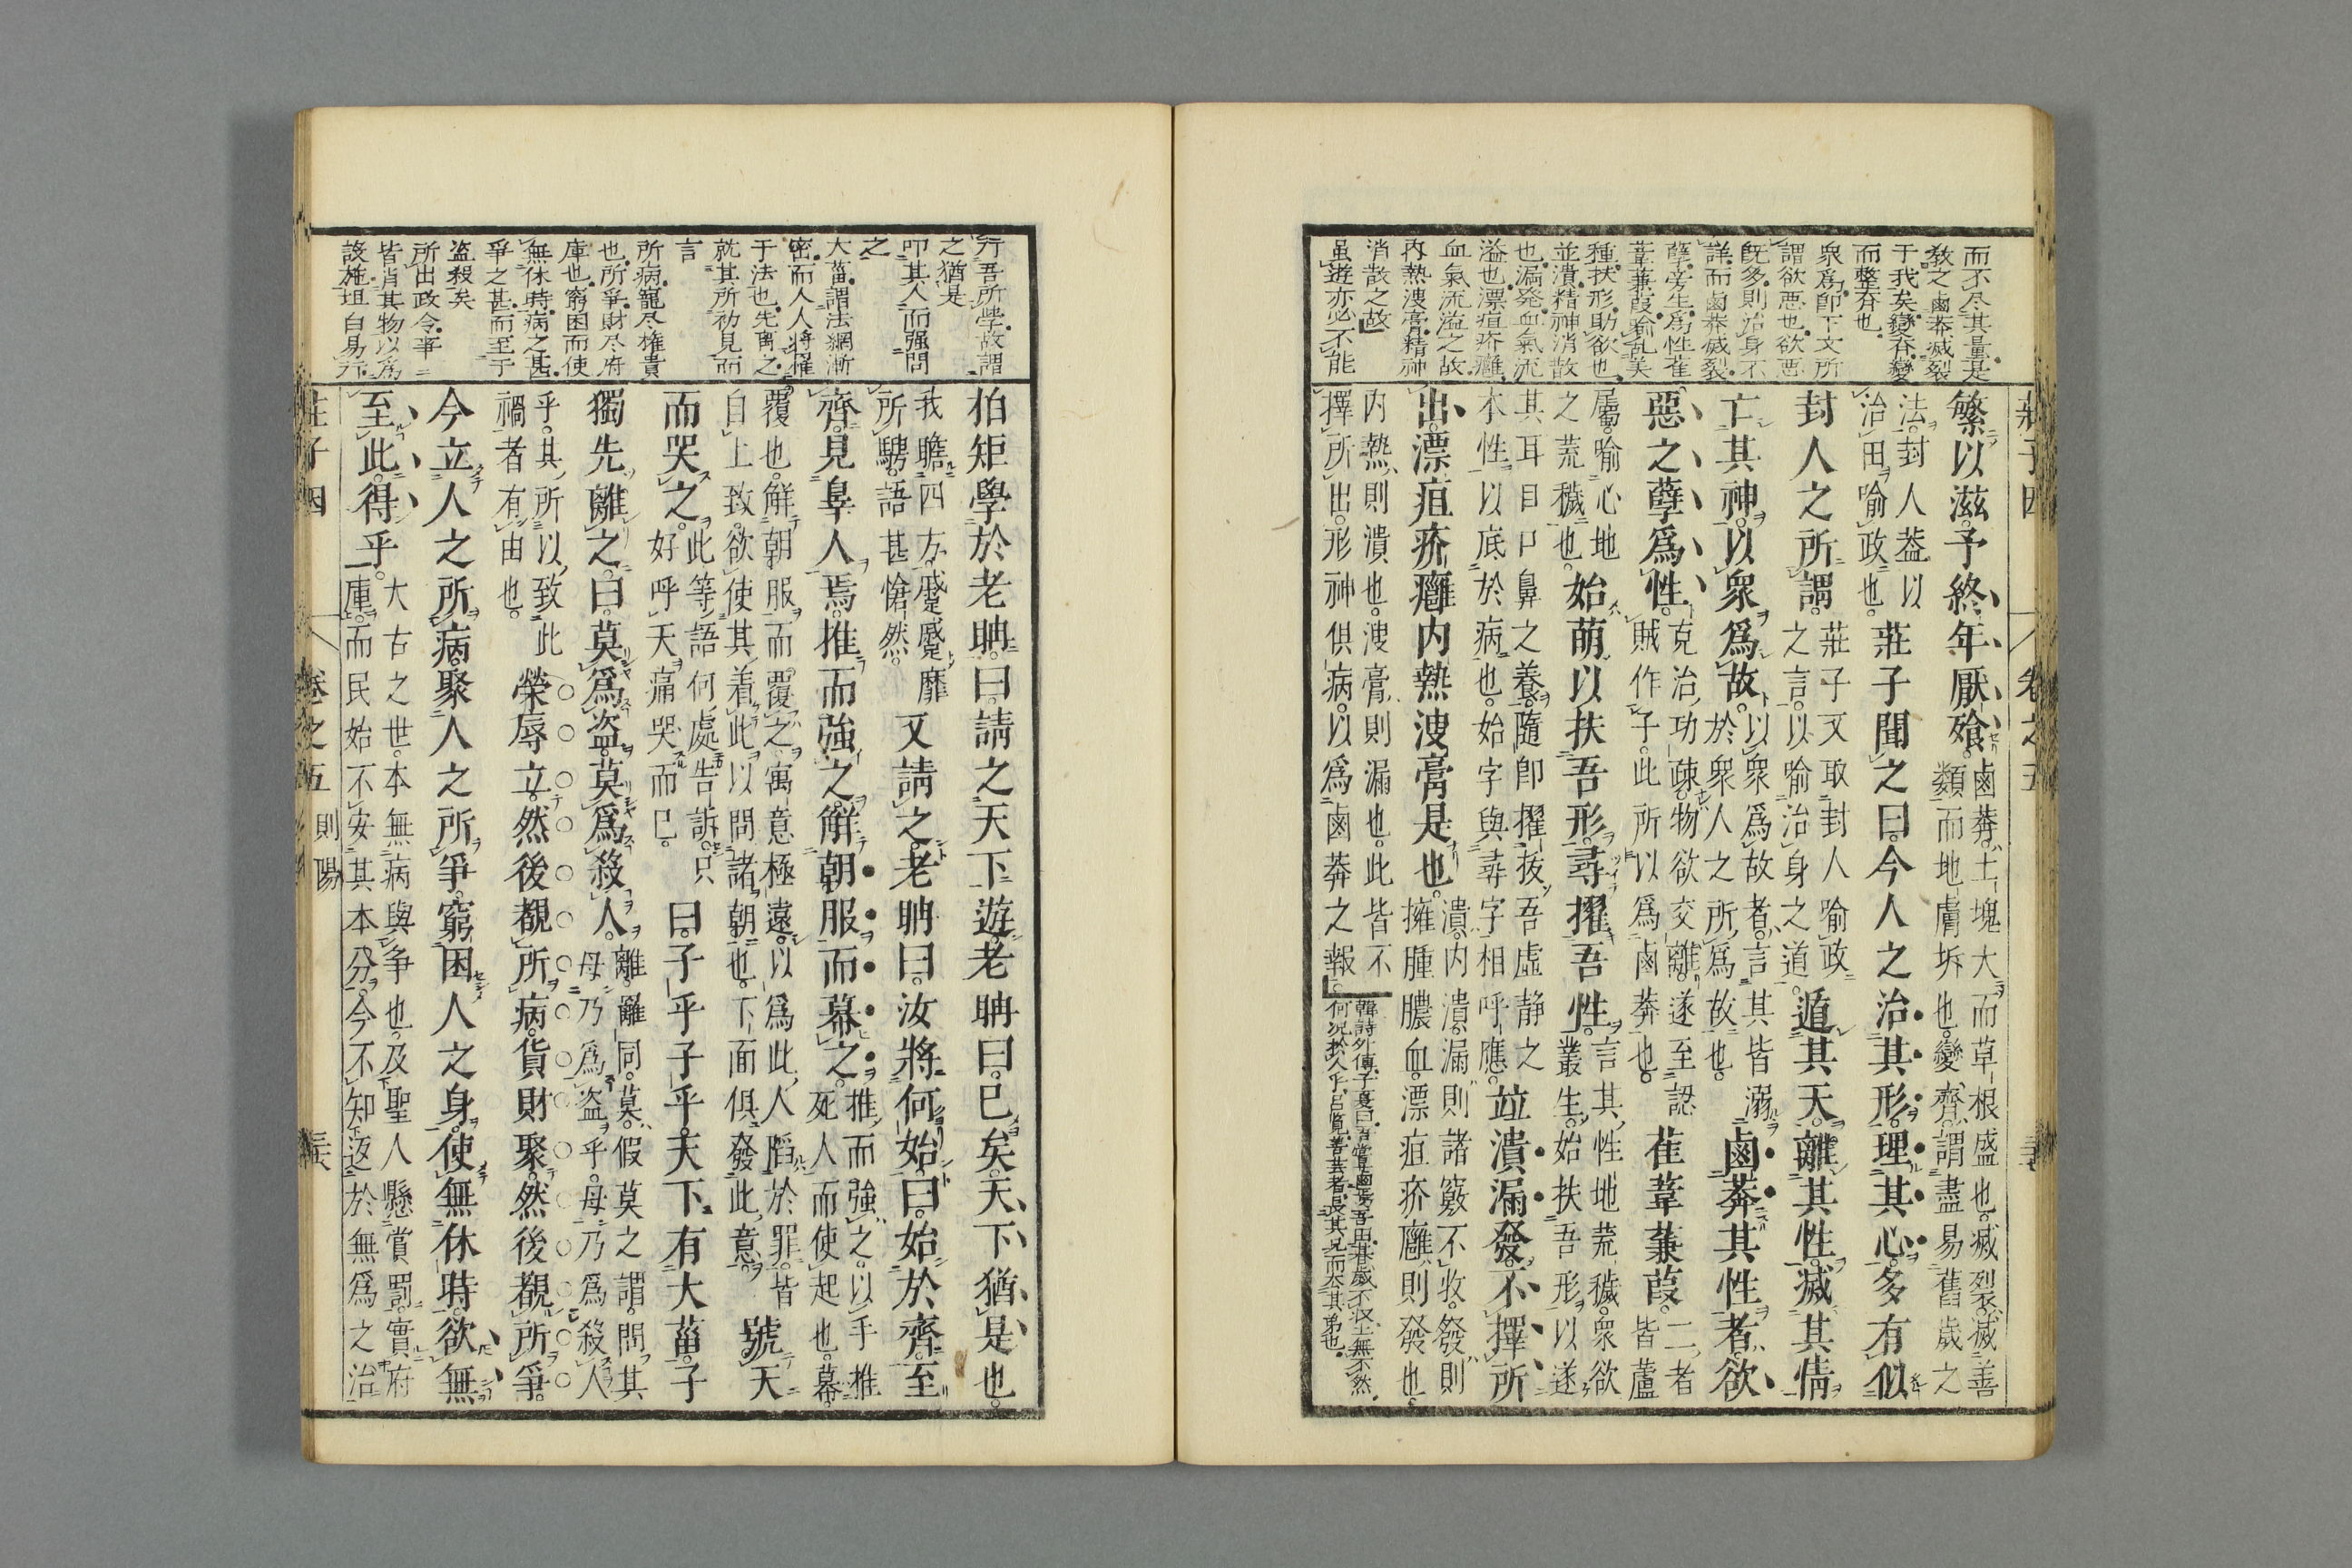 而不尽其量是
教之鹵莽滅裂
于我矣變齊變
而整齊也
衆爲卽下文所
謂欲悪也欲悪
既多則治身不
詳而鹵莽滅裂
孽旁生爲性萑
葦蒹葭喻乱美
種扶形助欲也
並潰精神消散
也漏発血氣流
溢也漂疽疥癰
血氣流溢之故
内熱溲膏精神
消散之故
虽遊亦必不能
莊子因 卷之五
繁以滋予終年厭飱。鹵莽土塊大而草根盛也。滅裂滅善類而地膚坼也。變齊謂盡易舊歲之
法。封人葢以治田喻政也。莊子聞之曰。今人之治其形。理其心。多有似
封人之所謂。莊子又取封人喻政之言。以喻治身之道。遁其天。離其性。滅其情。
亡其神。以衆爲故。以衆爲故者。言其皆溺於衆人之所爲故也。鹵莽其性者。欲
惡之孽爲性。克治功疎。物欲交離。遂至認賊作子。此所以爲鹵莽也。萑葦蒹葭。二者皆蘆
屬。喻心地之荒穢也。始萌以扶吾形。尋擢吾性。言其性地荒穢。衆欲叢生。始扶吾形。以遂
其耳目口鼻之養。隨卽擢拔吾虛静之本性。以底於病也。始字與尋字相呼應。竝潰漏發。不擇所
出。漂疽疥癰。内熱溲膏是也。潰内潰。漏則諸竅不收。發則擁腫膿血。漂疽疥廱則發也。
内熱則潰也。溲膏則漏也。此皆不擇所出。形神俱病。以爲鹵莽之報。韓詩外傳子夏曰
行吾所學故謂
之猶是
叩其人而强問
之
大菑謂法網漸
密而人人将罹
于法也先离之
就其所初見而
言
所病寵尽權貴
也所爭財尽府
庫也窮困而使
無休時病之甚
爭之甚而至于
盗殺矣
所出政令事
皆消其物以爲
設施坦白易行
柏矩學於老聃。曰。請之天下遊。老聃曰。已矣。天下猶是也。
我瞻四方。蹙蹙靡所騁。語甚愴然。又請之。老聃曰。汝將何始。曰。始於齊。至
齊。見辜人焉。推而強之。解朝服而幕之。推而強之。以手推死人而使起也。幕
覆也。解朝服而覆之。寓意極遠。以爲此人陷於罪。皆自上致。欲使其着此以問諸朝也。下面俱發此意。號天
而哭之。此等語何處告訴。只好呼天痛哭而已。曰。子乎子乎。天下有大菑。子
獨先離之。曰。莫爲盗。莫爲殺人。離。離同。莫。假莫之謂。問其母乃爲盗乎。母乃爲殺人
乎。其所以致此禍者有由也。榮辱立。然後覩所病。貨財聚。然後覩所爭。
今立人之所病。聚人之所爭。窮困人之身。使無休時。欲無
至此。得乎。大古之世。本無病與争也。及聖人懸賞罰。實府庫。而民始不安其本分。今不知返於無爲之治
莊子因 卷之五 則陽